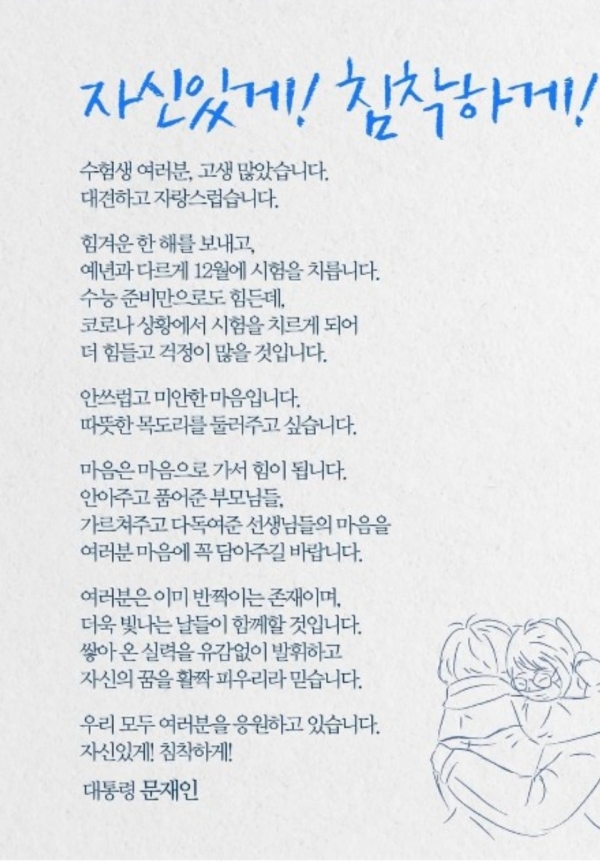 자신있게! 침착하게!
수험생 여러분, 고생 많았습니다.
대견하고 자랑스럽습니다.
힘겨운 한 해를 보내고,
예년과 다르게 12월에 시험을 치릅니다.
수능 준비만으로도 힘든데,
코로나 상황에서 시험을 치르게 되어
더 힘들고 걱정이 많을 것입니다.
안쓰럽고 미안한 마음입니다.
따뜻한 목도리를 둘러주고 싶습니다.
마음은 마음으로 가서 힘이 됩니다.
안아주고 품어준 부모님들,
가르쳐주고 다독여준 선생님들의 마음을
여러분 마음에 꼭 담아주길 바랍니다.
여러분은 이미 반짝이는 존재이며,
더욱 빛나는 날들이 함께할 것입니다.
쌓아 온 실력을 유감없이 발휘하고
자신의 꿈을 활짝 피우리라 믿습니다.
우리 모두 여러분을 응원하고 있습니다.
자신있게! 침착하게!
대통령 문재인